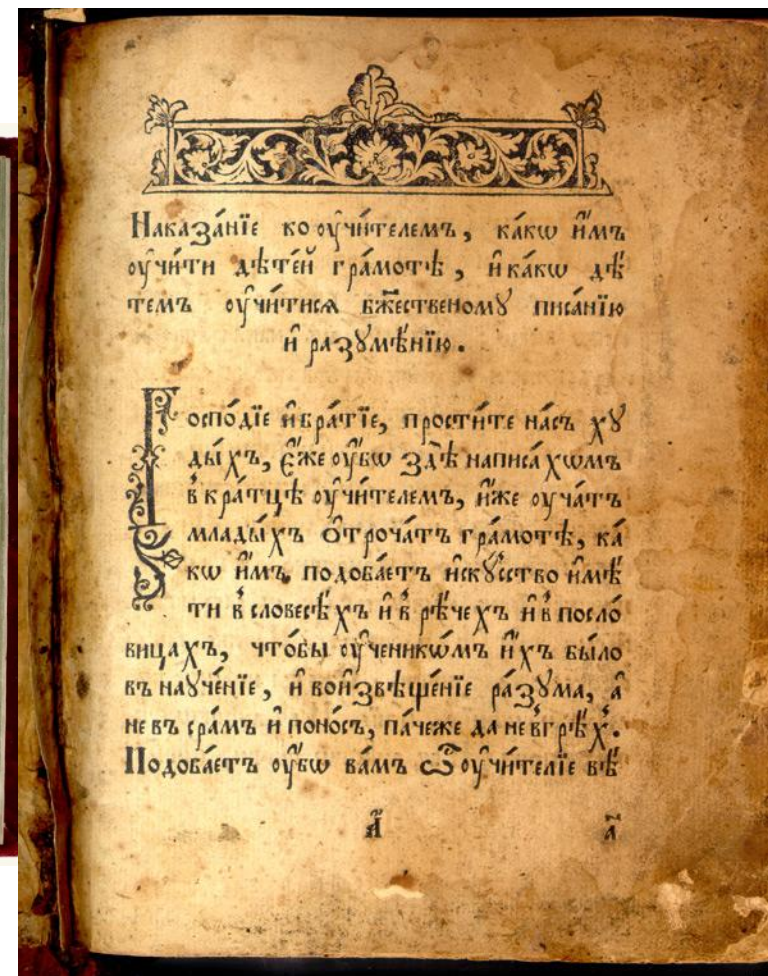 Наказа́нїе ко оу҆чи́телемъ, ка́кѡ и҆̀мъ
оу҆чи́ти дѣте́й гра́мотѣ, и҆ ка́кѡ дѣ́
темъ оу҆чи́тисѧ бж҃е́ственомꙋ писа́нїю
и҆ разꙋмѣ́нїю.
Господі́е и҆ бра́тїе, прости́те на́съ хꙋ
ды́хъ, є҆́же оу҆́бѡ здѣ̀ написа́хѡмъ
в̾кра́тцѣ оу҆чи́телемъ, и҆̀же оу҆ча́тъ
млады́хъ ѻ҆троча́тъ гра́мотѣ, ка́
кѡ и҆̀мъ подоба́етъ и҆скꙋ́сство и҆мѣ́
ти в̾ словесѣ́хъ и҆ в̾ рѣ́чехъ и҆ в̾ посло́
вицахъ, что́бы оу҆ченикѡ́мъ и҆́хъ бы́ло
въ наꙋче́нїе, и҆ во и҆звѣще́нїе ра́зꙋма, а҆
не въ сра́мъ и҆ поно́съ, па́че же да не в̾ грѣ́хⷯ.
Подоба́етъ оу҆́бѡ ва́мъ ѽ оу҆чи́телїе вѣ́
а҃ а҃